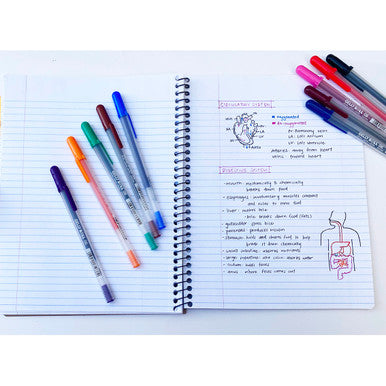 CIRCULATORY SYSTEM
oxygenated
de-oxygenated
PV: Pulmonary vein
LA: Left Atrium
LV: Left ventricle
Arteries: Away from heart
Veins: toward heart
DIGESTIVE SYSTEM
- mouth: mechanically & chemically
breaks down food
- esophagus: involuntary muscles contract
and relax to move food
- liver: makes bile
bile breaks down food (fats)
- gallbladder: stores bile
- pancreas: produces insulin
- stomach: holds and churns food to help
break it down chemically
- small intestine: absorbs nutrients
- large intestine: also colon absorbs water
- rectum: holds feces
- anus: where feces comes out